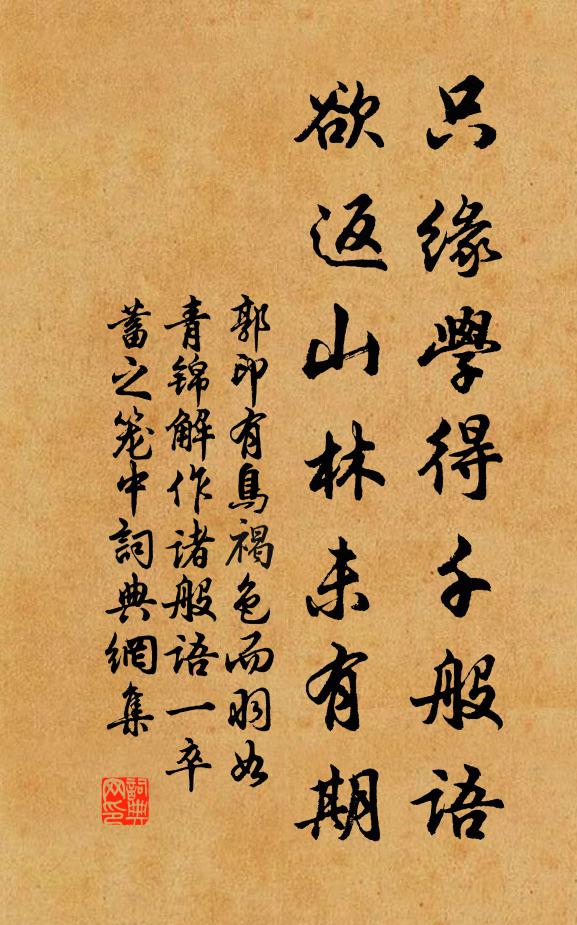 只緣學得千般語
欲返山林未有期
郭印有鳥褐色而羽如
青錦解作諸般語一卒
蓄之笼中詞典網集
詞典网印